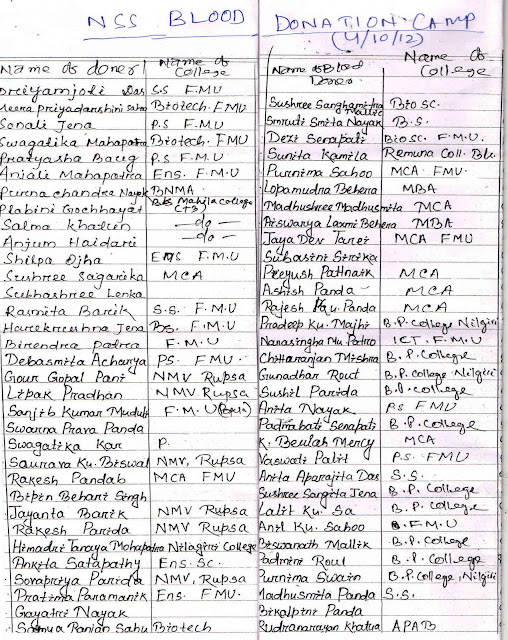 NSS BLOOD DONATION CAMP
(4/10/12)
Name of doner Name of College
Priyamjoli Das S.S F.M.U
Meera Priyadarshini Sahoo Biotech. F.M.U
Sonali Jena P.S F.M.U
Swagatika Mahapatra Biotech. FMU
Pratyasha Baug P.S F.M.U
Anjali Mahapatra Ens. F.M.U
Purna chandra Nayak BNMA
Plabini Gochhayat Mahila College (+3)
Salma khatun — do —
Anjum Haidari — do —
Shilpa Ojha ENS F.M.U
Sushree Sagarika MCA
Subhashree Lenka
Rasmita Barik S.S. F.M.U
Harekrushna Jena BS. F.M.U
Birendra patra F.M.U
Debasmita Acharya PS. FMU.
Gour Gopal Pani NMV Rupsa
Lipak Pradhan NMV. Rupsa
Sanjib Kumar Muduli F.M.U
Swarna Prava Panda
Swagatika Kar P.
Saurava Ku. Biswal NMV, Rupsa
Rakesh Pandab MCA FMU
Bipin Behari Singh
Jayanta Barik NMV Rupsa
Rakesh Parida NMV Rupsa
Himadri Tanaya Mohapatra Nilagiri College
Ankita Satapathy Ens. Sc.
Sovapriya Parida NMV, Rupsa
Pratima Paramanik Ens. FMU
Gayatri Nayak
Somya Ranjan Sahu Biotech
Name of Blood Doner Name of College
Sushree Sanghamitra Mallic BioSc.
Smruti Smita Nayak B.S.
Dezi Senapati BioSc. F.M.U.
Sunita Kamila Remuna Coll. Bls.
Purnima Sahoo MCA FMU
Lopamudra Behera MBA
Madhushree Madhusmita MCA
Aiswarya Laxmi Behera MBA
Jaya Dev Tarei MCA FMU
Subasini Sirika
Preeyush Pattnaik MCA
Ashish Panda MCA
Rajesh Ku. Panda MCA
Pradeep Ku. Majhi B.P. College Nilgiri
Narasingha Nu Patro ICT. F.M.U
Chittaranjan Mishra B.P. College
Gunadhar Rout B.P. college Nilgiri
Sushil Parida B.P. college
Anita Nayak P.S FMU
Padmabati Senapati B.P. college
K. Beulah Mercy MCA
Vaswati Palit P.S. FMU
Anita Aparajita Das S.S.
Sushree Sangita Jena B.P. College
Lalit Ku. Sa B.P. College
Anil Ku. Sahoo B.F.M.U
Biswanath Mallik B.P. College
Padmini Roul B.P. College
Purnima Swain B.P. College, Nilgiri
Madhusmita Panda S.S.
Bikalpini Panda
Rudranarayan Khatua APAB